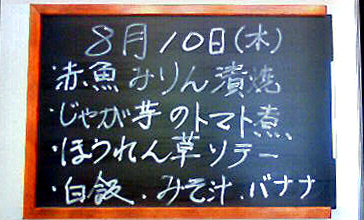 8月10日(木)
・赤魚みりん漬焼
・じゃが芋のトマト煮
・ほうれん草ソテー
・白飯・みそ汁・バナナ